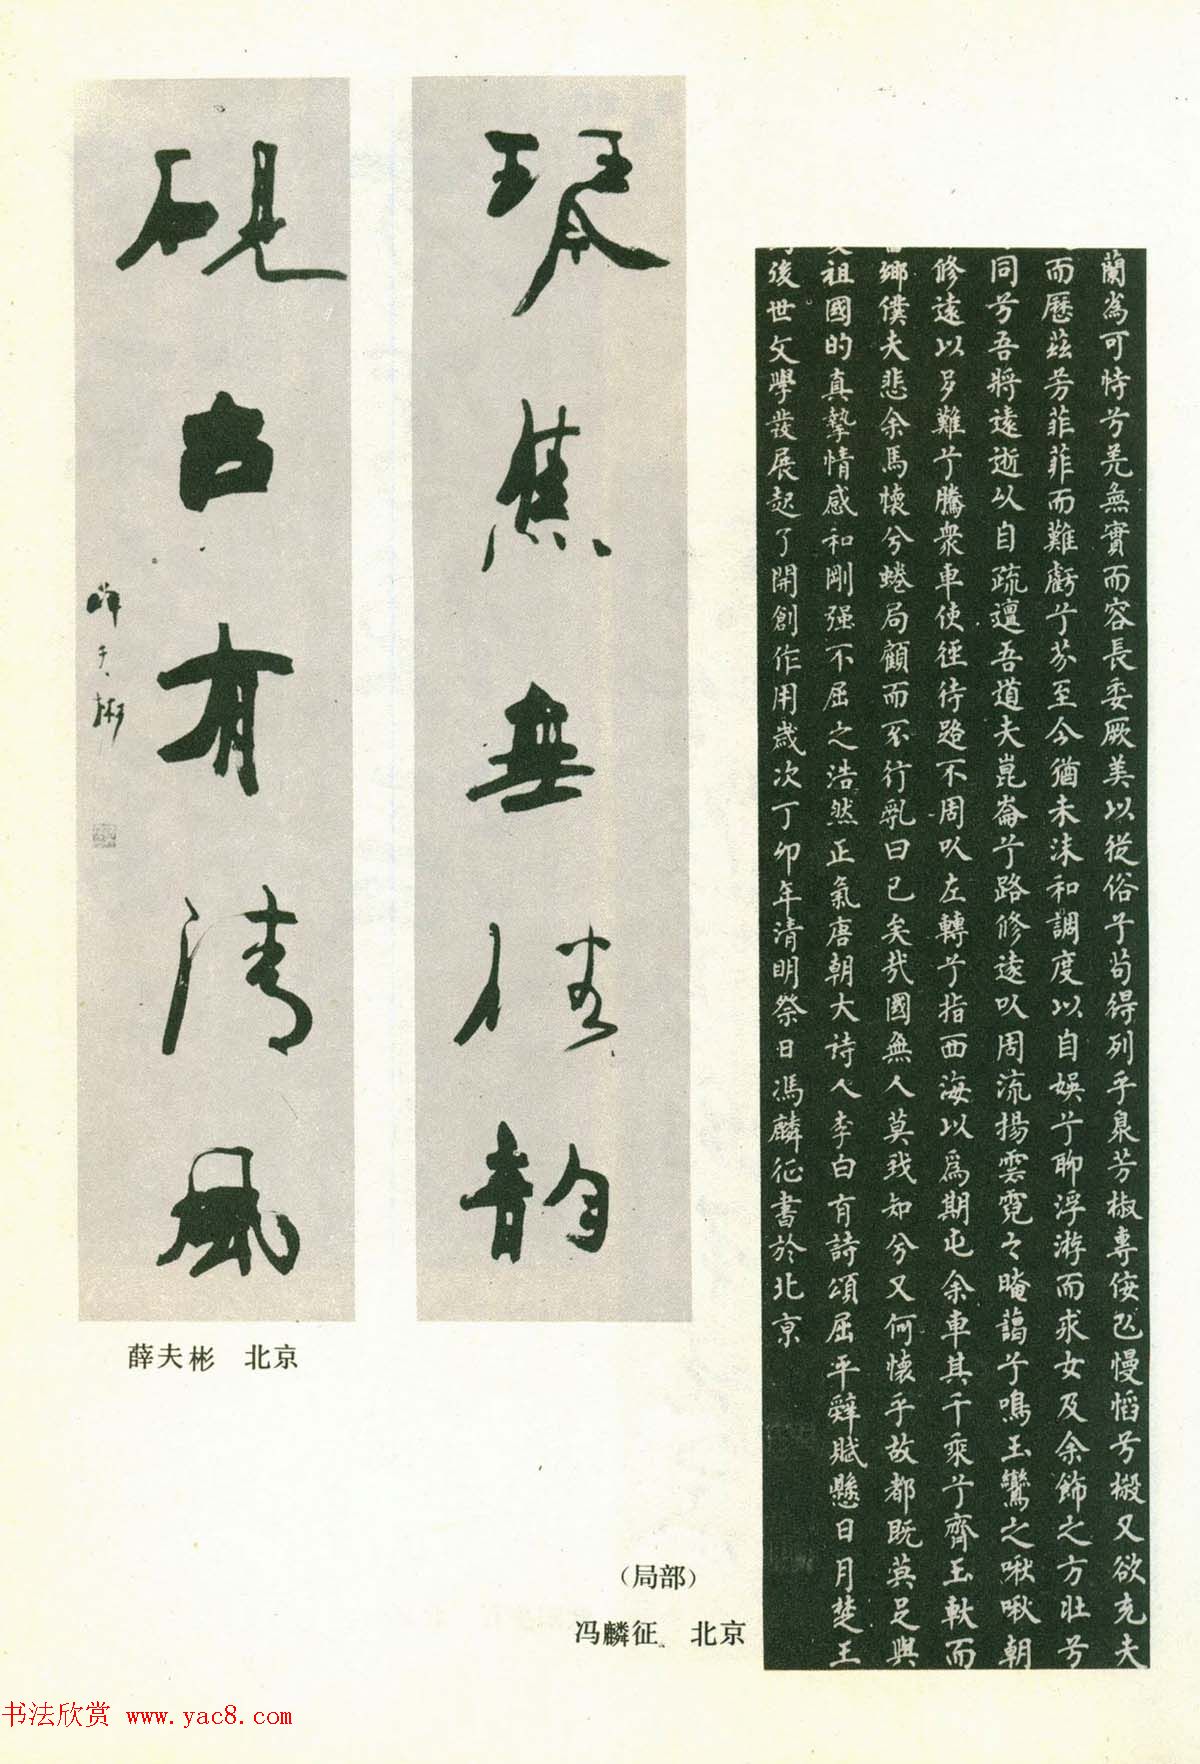 蘭為可恃兮羌無實而容長委厥美以從俗兮苟得列乎衆芳椒專佞以慢慆兮樧又欲充夫
而歷茲芳菲菲而難虧兮芬至今猶未沬和調度以自娛兮聊浮游而求女及余飾之方壯兮
同兮吾將遠逝以自疏邅吾道夫崑崙兮路修遠以周流揚雲霓之晻藹兮鳴玉鸞之啾啾朝
修遠以多難兮騰衆車使徑待路不周以左轉兮指西海以爲期屯余車其千乘兮齊玉軑而
鄉僕夫悲余馬懷兮蜷局顧而不行亂曰已矣哉國無人莫我知兮又何懷乎故都既莫足與
祖國的真摯情感和剛强不屈之浩然正氣唐朝大诗人李白有詩頌屈平辭賦懸日月楚王
後世文學發展起了開創作用歲次丁卯年清明祭日馮麟征書於北京
琴焦無俗韵
硯古有清風
薛夫彬
薛夫彬 北京
（局部）
冯麟征 北京
书法欣赏 www.yac8.com